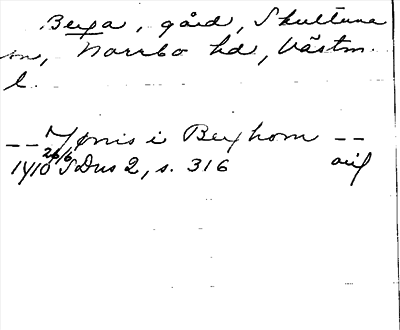 Berga, gård, Skultuna
sn, Norrbo hd, Västm.
l.
-- Jønis i Berghom --
1410 26/6 SDns 2, s. 316